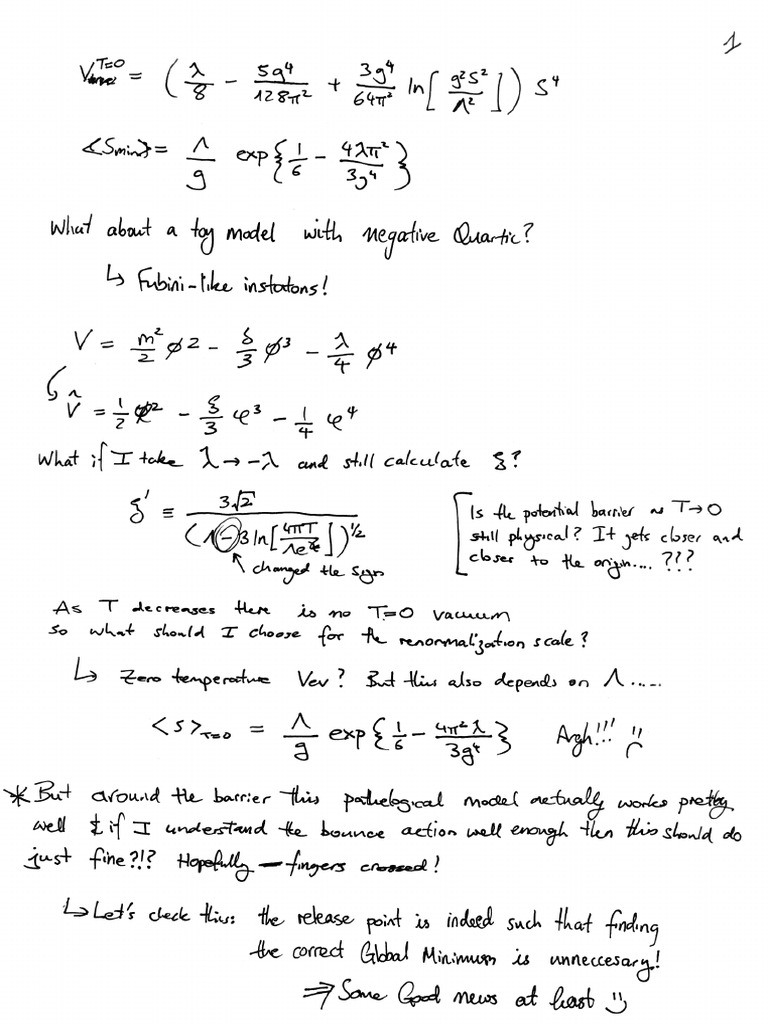 1
V^{T=0} = ( λ/8 − 5g⁴/128π² + 3g⁴/64π² ln[ g²S²/Λ² ] ) S⁴
<Smin> = Λ/g exp{ 1/6 − 4λπ²/3g⁴ }
What about a toy model with negative Quartic?
↳ Fubini-like instatons!
V = m²/2 φ² − δ/3 φ³ − λ/4 φ⁴
V̂ = 1/2 φ² − ξ/3 φ³ − 1/4 φ⁴
What if I take λ → −λ and still calculate ξ?
ξ' ≡ 3√2 / (Λ − 3 ln[ 4πT/Λe^γ ])^{1/2}
changed the sign
Is the potential barrier as T→0
still physical? It gets closer and
closer to the origin.... ???
As T decreases there is no T=0 vacuum
so what should I choose for the renormalization scale?
↳ Zero temperature Vev? But this also depends on Λ.....
<S>_{T=0} = Λ/g exp{ 1/6 − 4π²λ/3g⁴ } Argh!!! :(
* But around the barrier this pathological model actually works pretty
well & if I understand the bounce action well enough then this should do
just fine?!? Hopefully — fingers crossed!
↳ Let's check this: the release point is indeed such that finding
the correct Global Minimum is unneccesary!
⇒ Some Good news at least :)